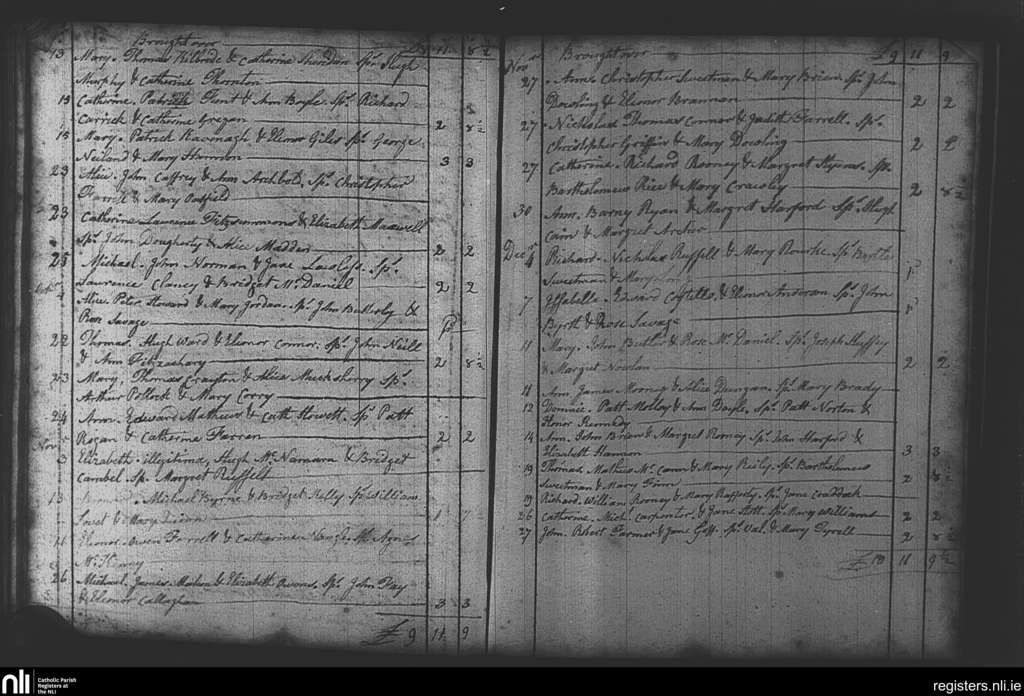 Brought over
13 Mary. Thomas Kilbride & Catherine Sheridan Sp.rs Hugh
Murphy & Catherine Thornton
13 Catherine. Patrick Hunt & Ann Boyle Sp.rs Richard
Carrick & Catherine 2 8½
18 Mary. Patrick Kavonagh & Elenor Giles Sp.rs George
Neiland & Mary Harmdon 3 3
23 Alice. John Caffrey & Ann Archbold. Sp.rs Christopher
Farrell & Mary
23 Catherine Laurence Fitzsimmons & Elizabeth Maxwell
Sp.rs John Dougherty & Alice Madden 2 2
25 Michael. John Norman & Jane Lawless. Sp.rs
Laurence Clancy & Bridget Mc Daniel 2 2
4 Alice. Peter Howard & Mary Jordan. Sp.rs John Butterly &
Rose Savage
22 Thomas. Hugh Ward & Elenor Connor. Sp.rs John Neill
& Ann Fitzachary 2 8½
23 Mary. Thomas Crayton & Alice Sp.rs
Arthur Pollock & Mary Corry
24 Ann. Edward Mathews & Cath Howett. Sp.rs Patt
Rogan & Catherine Farren 2 2
Nov.r 3 Elizabeth. illegitima, Hugh Mc Namara & Bridget
Cambel. Sp. Margret Russell
13 Michael Byrne & Bridget Kelly Sp.rs William
Sweet & Mary 1 7
Elenor. Owen Farrell & Catharine Sp. Agnes
Mc Kenny
26 Michael. James & Elizabeth Owens. Sp.rs John Fay
& Elenor Callaghan 3 3
£ 9 11 9
Brought over £ 9 11 9
Nov.r 27 Ann. Christopher Sweetman & Mary Brien Sp.rs John
Dowling & Elenor Brannan 2 2
27 Nicholas Thomas Connor & Judith Farrell. Sp.rs
Christopher Griffin & Mary Dowling 2 2
27 Catherine. Richard Rooney & Margret Sp.rs
Bartholomew Rice & Mary Crawley 2 8½
30 Ann. Barny Ryan & Margret Harford Sp.rs Hugh
Cain & Margret
Dec.r 4 Richard. Nicholas Russell & Mary Rourke. Sp.rs Bartle
Sweetman & Mary
7 Issabella. Edward Costello & Elenor Anderson Sp.rs John
Byrth & Rose Savage
11 Mary. John Butler & Rose Mc Daniel. Sp.rs Joseph Haffey
& Margret Nowlan 2 2
11 Ann James & Alice Dungan. Sp.rs Mary Brady
12 Dominic. Patt Molloy & Ann Doyle. Sp.rs Patt Norton &
Honor Kennedy
14 Ann. John Brien & Margret Rooney Sp.rs John Harford &
Elizabeth Hannon 3 3
19 Thomas Mathew Mc Cann & Mary Reily. Sp.rs Bartholomew
Sweetman & Mary Finn 2 8½
19 Richard. William Rooney & Mary Rafferty. Sp.rs Jane Craddock
26 Catherine. Mich.l Carpenter & Jane Stott. Sp.rs Mary Williams 2 2
27 John. Robert Farmer & Jane Goff. Sp.rs Val. & Mary Tyrell 2 8½
£ 10 11 9½
nli Catholic Parish
Registers at
the NLI
registers.nli.ie